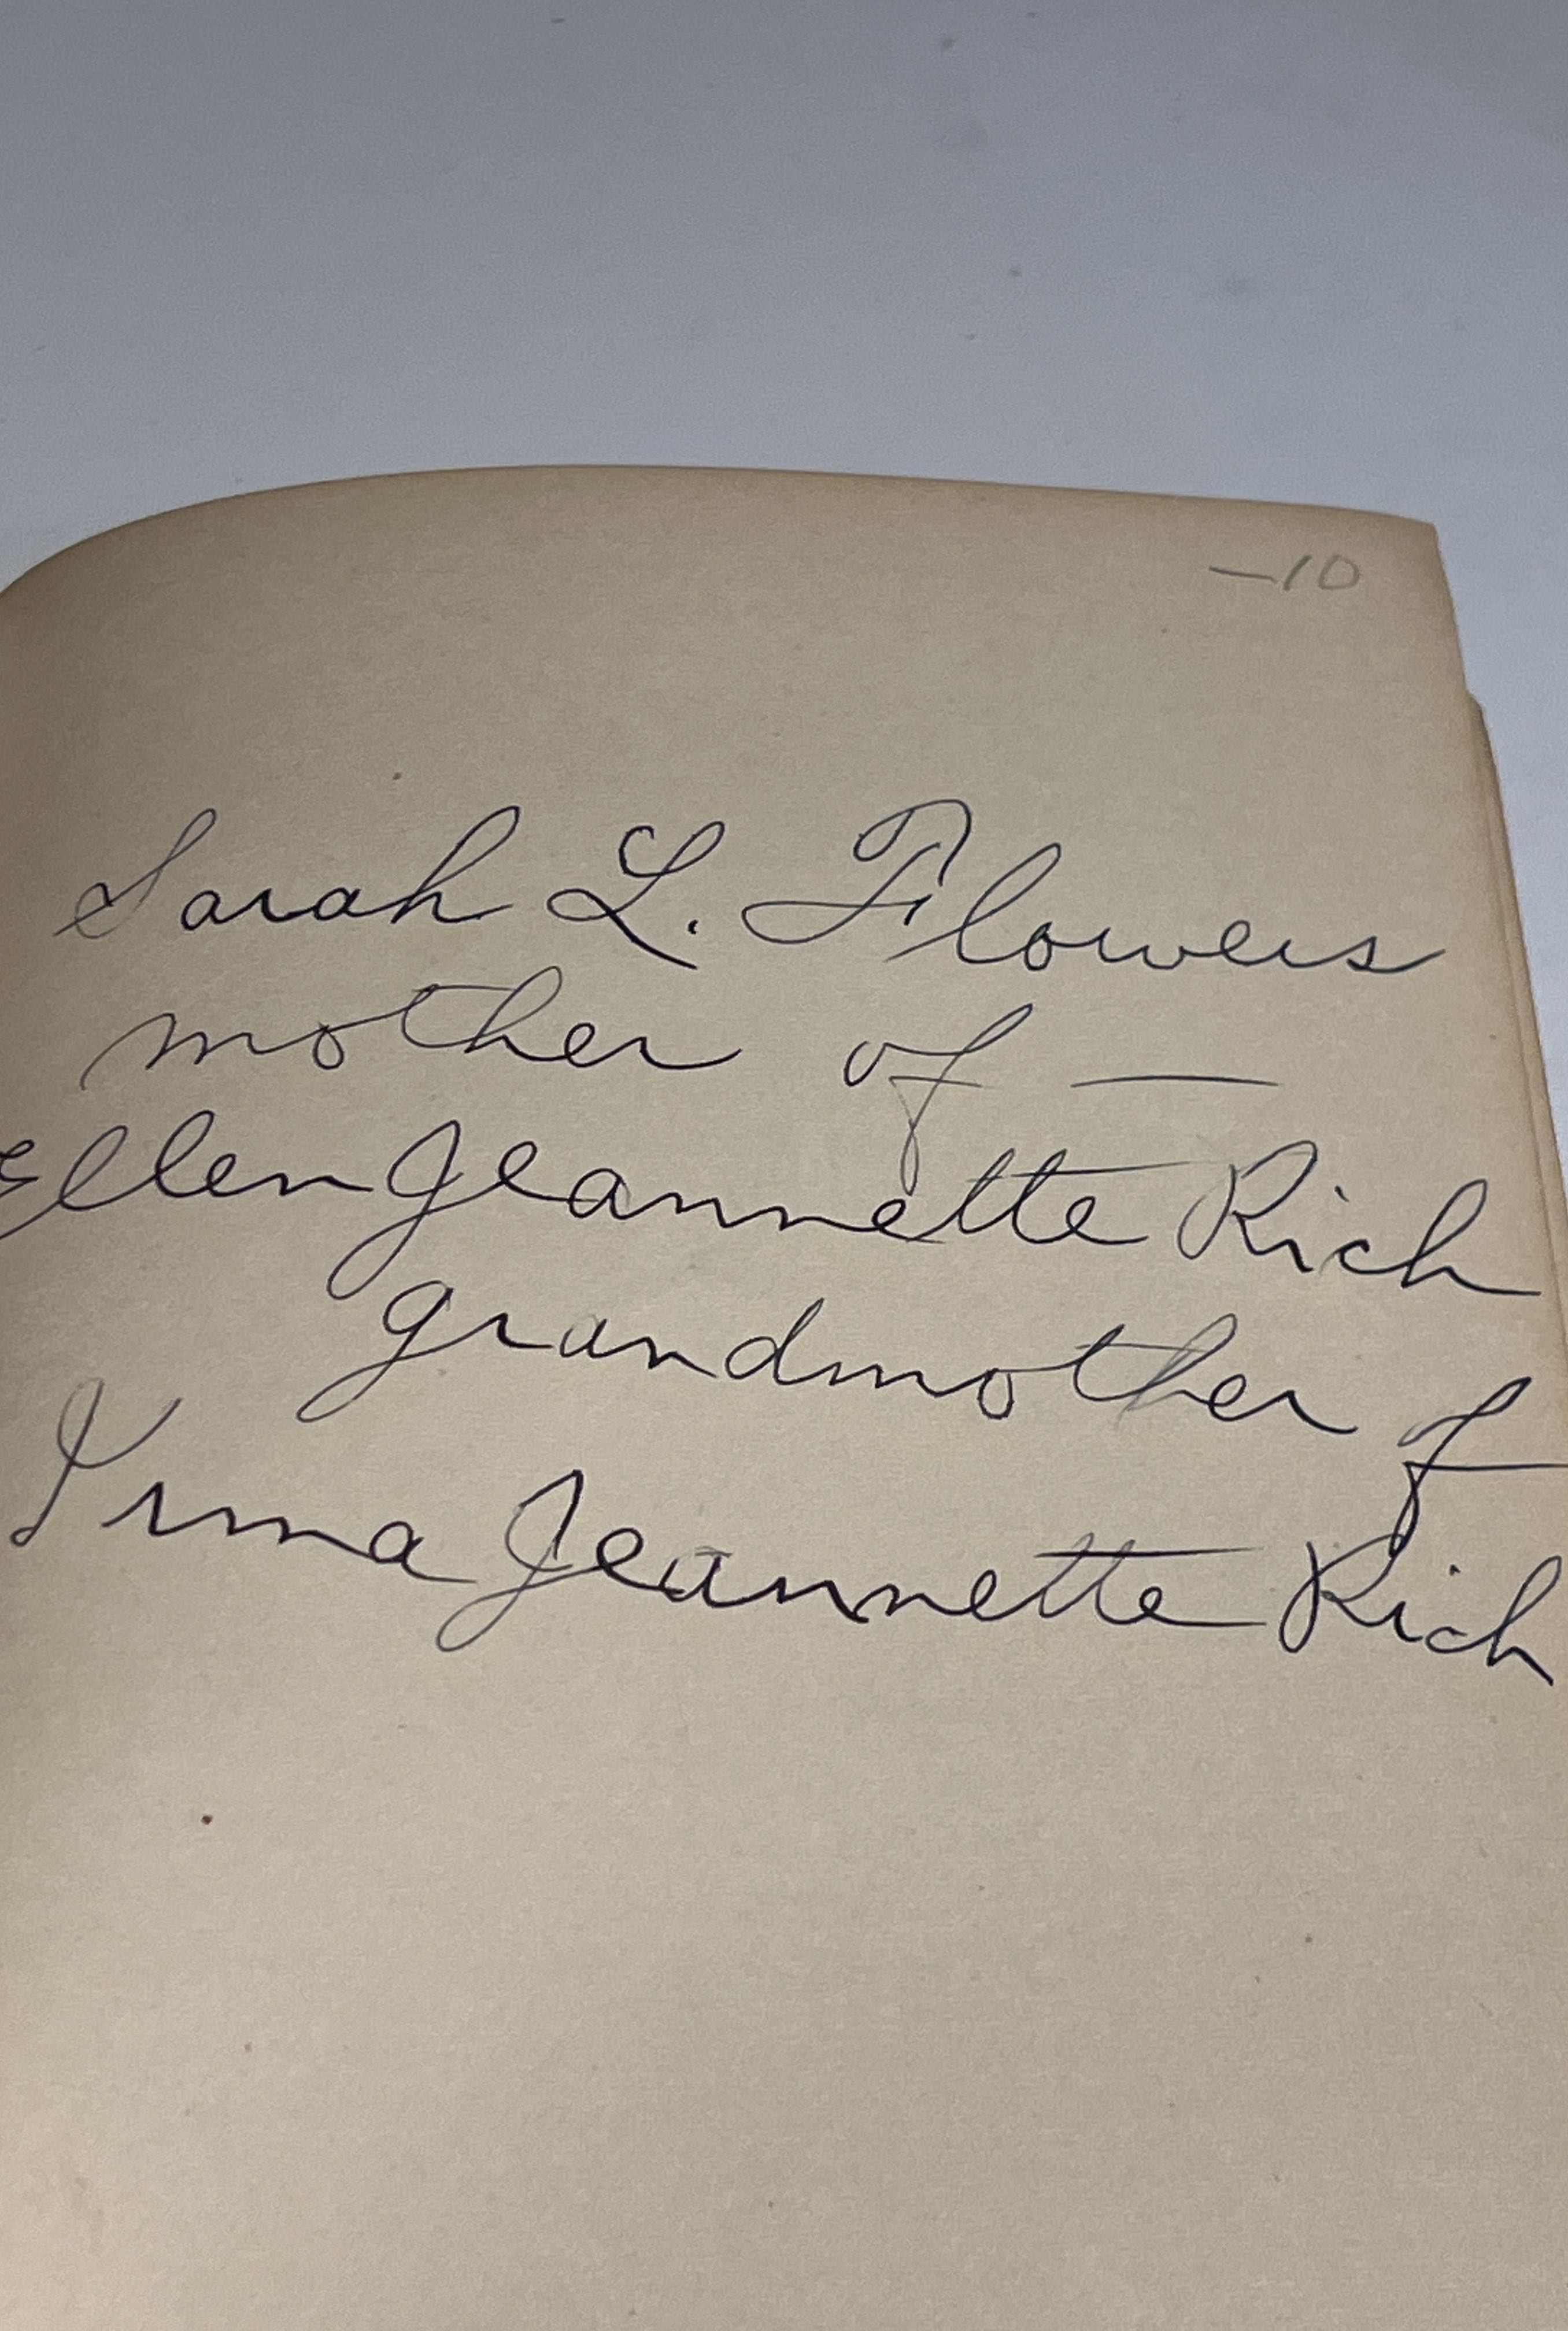 —10
Sarah L. Flowers
mother of —
Ellen Jeannette Rich
grandmother of
Irma Jeannette Rich